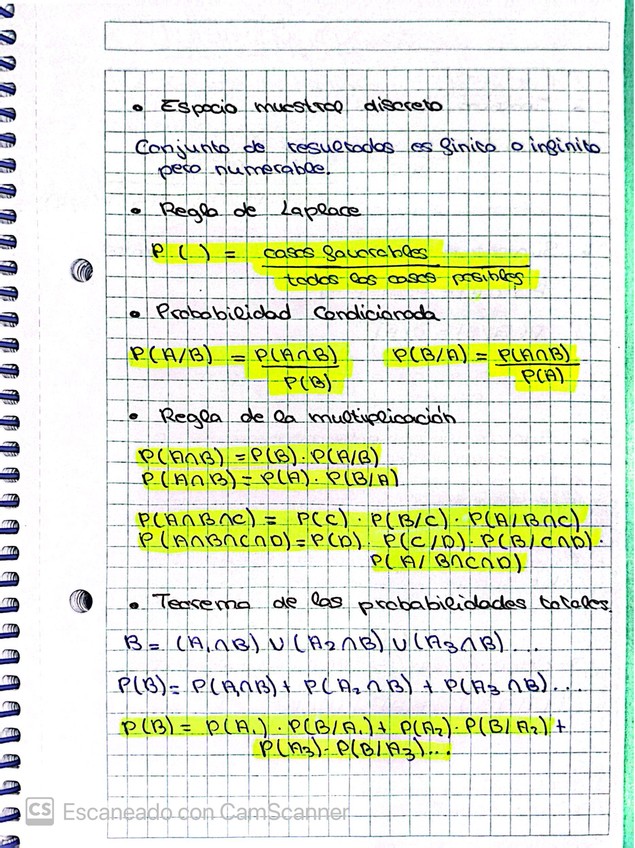 • Espacio muestral discreto
Conjunto de resultados es finito o infinito
pero numerable.
• Regla de Laplace
P ( ) = casos favorables / todos los casos posibles
• Probabilidad Condicionada
P(A/B) = P(A∩B) / P(B)    P(B/A) = P(A∩B) / P(A)
• Regla de la multiplicación
P(A∩B) = P(B) · P(A/B)
P(A∩B) = P(A) · P(B/A)
P(A∩B∩C) = P(C) · P(B/C) · P(A/B∩C)
P(A∩B∩C∩D) = P(D) · P(C/D) · P(B/C∩D) ·
P(A/B∩C∩D)
• Teorema de las probabilidades totales.
B = (A₁∩B) ∪ (A₂∩B) ∪ (A₃∩B)...
P(B) = P(A₁∩B) + P(A₂∩B) + P(A₃∩B)...
P(B) = P(A₁) · P(B/A₁) + P(A₂) · P(B/A₂) +
P(A₃) · P(B/A₃)...
CS Escaneado con CamScanner